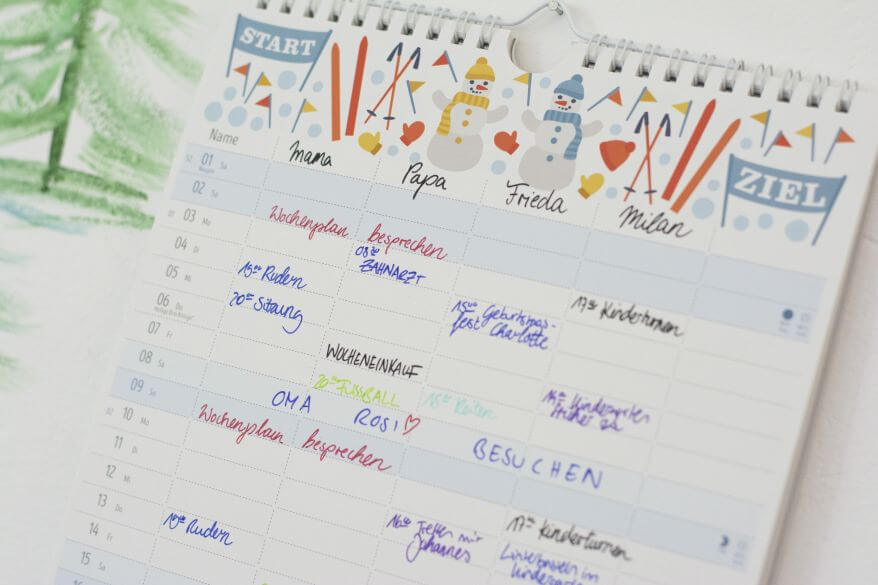 START
ZIEL
Name Mama Papa Frieda Milan
01 Sa
02 So
03 Mo Wochenplan besprechen
04 Di 08⁰⁰ ZAHNARZT
05 Mi 15⁰⁰ Rudern
06 Do 20⁰⁰ Sitzung 15⁰⁰ Geburtstags- 17⁰⁰ Kinderturnen
fest Charlotte
07 Fr WOCHENEINKAUF
08 Sa 20⁰⁰ FUSSBALL 15⁰⁰ Reiten 14⁰⁰ Kindergarten
früher zu
09 So OMA ROSI ♡ BESUCHEN
10 Mo Wochenplan besprechen
11 Di
12 Mi
13 Do Rudern 16⁰⁰ Treffen mit 17⁰⁰ Kinderturnen
Johannes
14 Fr im
15 Sa